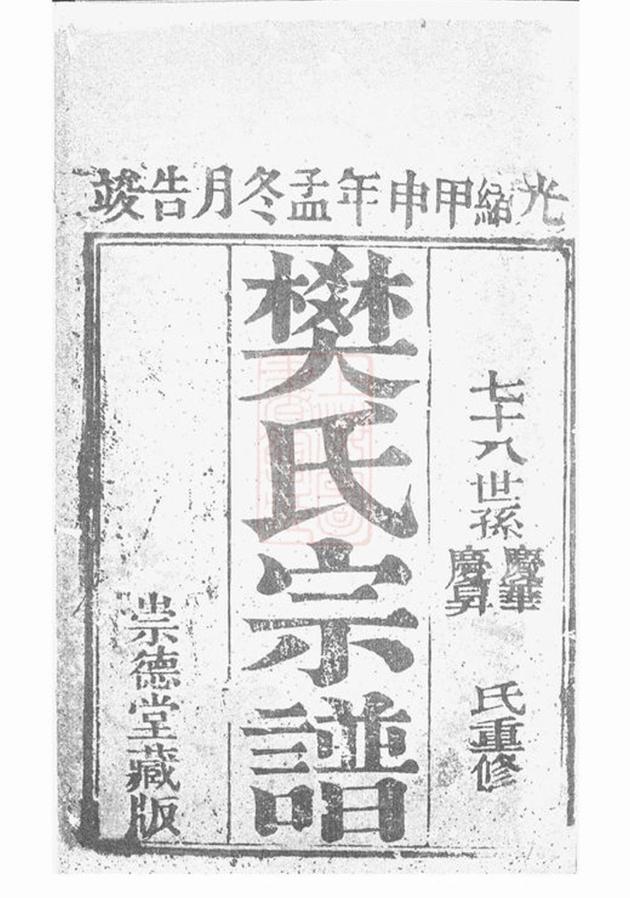 光緒甲申年孟冬月告竣
七十八世孫慶華慶昇氏重修
樊氏宗譜
崇德堂藏版